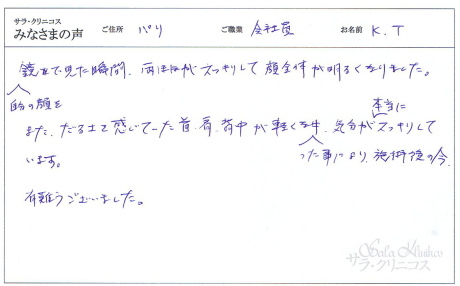 サラ・クリニコス
みなさまの声
ご住所 パリ
ご職業 会社員
お名前 K.T
鏡で見た瞬間、両ほほがスッキリして顔全体が明るくなりました。
自分の顔を
本当に
また、だるさを感じていた首、肩、背中が軽くな 気分がスッキリして
います。
った事により、施術後の今、
有難うございました。
Sala Klinikos
サラ・クリニコス